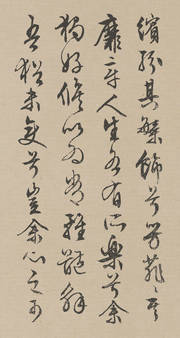 繽紛其繁飾兮芳菲菲其
靡章人生各有所樂兮余
獨好脩以為常雖體解
吾猶未變兮豈余心之可